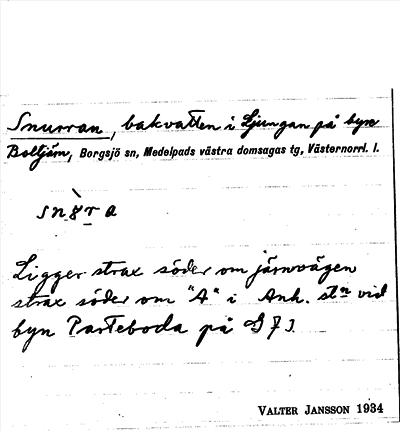 Snurran, bakvatten i Ljungan på byn
Boltjärn, Borgsjö sn, Medelpads västra domsagas tg, Västernorrl. l.
Ligger strax söder om järnvägen
strax söder om "A" i Anh. stn vid
byn Parteboda på
VALTER JANSSON 1934